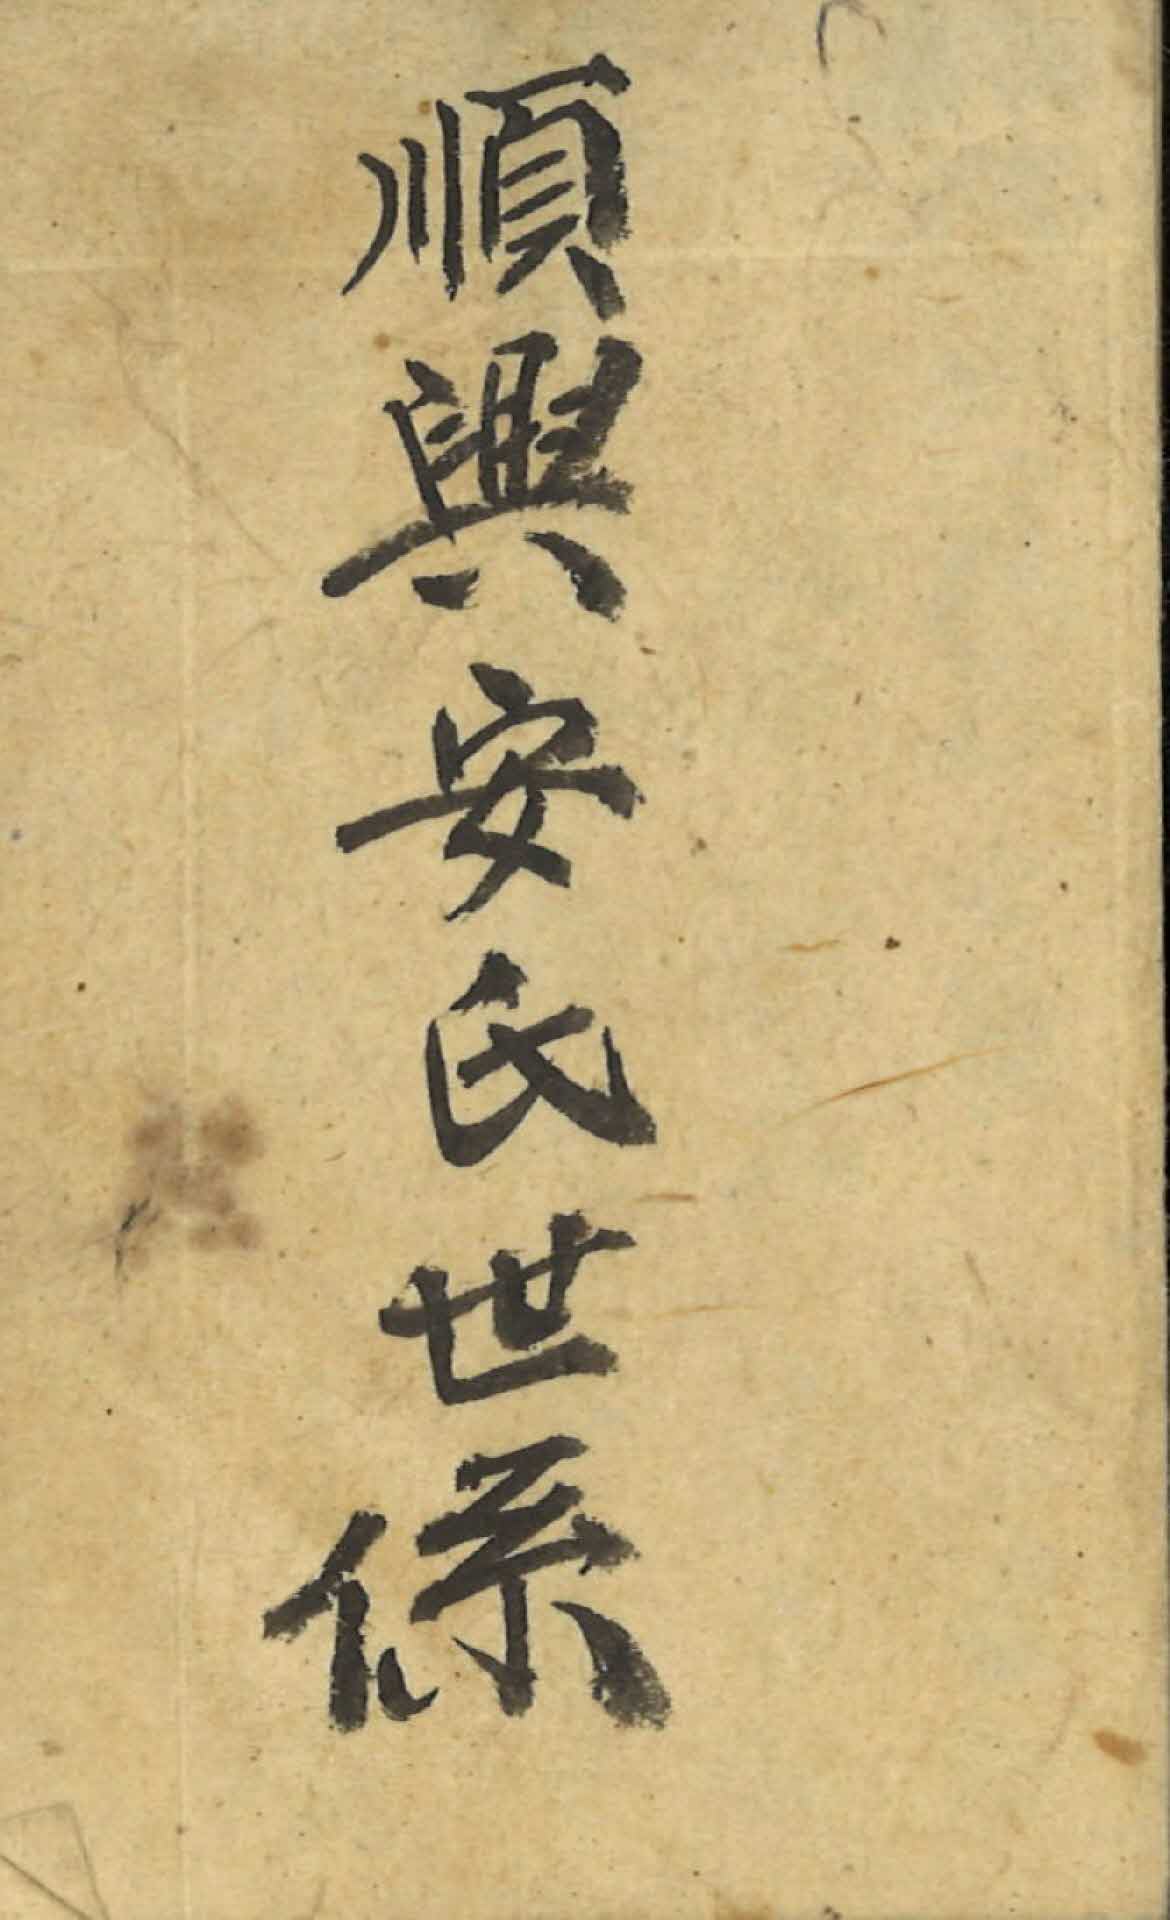 順興安氏世係